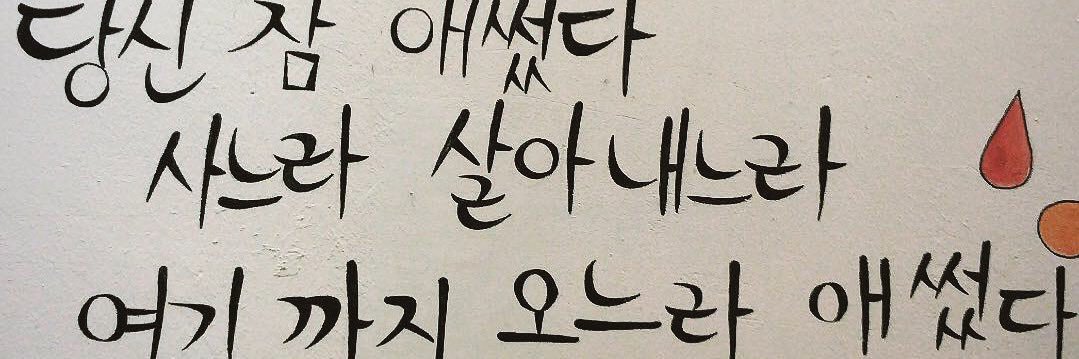 당신 참 애썼다
사느라 살아내느라
여기까지 오느라 애썼다